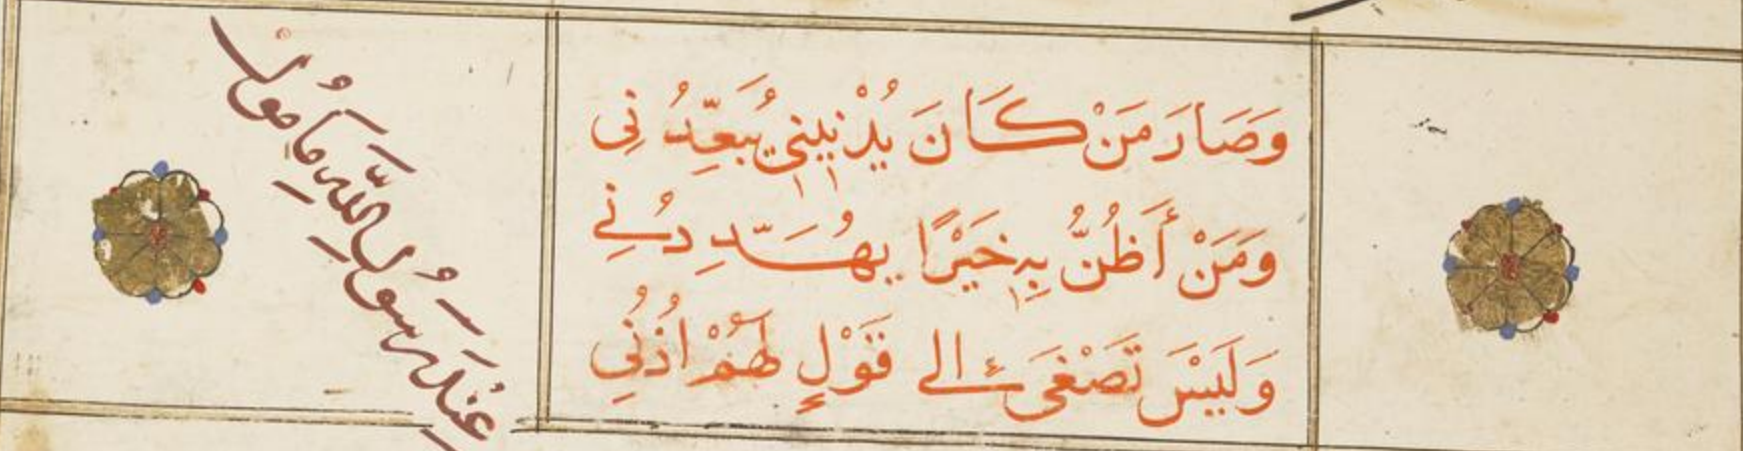 وَصَارَ مَنْ كَانَ يُدْنِينِي يُبَعِّدُنِي
وَمَنْ أَظُنُّ بِهِ خَيْرًا يُهَدِّدُنِي
وَلَيْسَ تَصْغَى إِلَى قَوْلٍ لَهُمْ اُذُنِي
عِنْدَ رَسُولِ اللَّهِ مَأْمُولُ